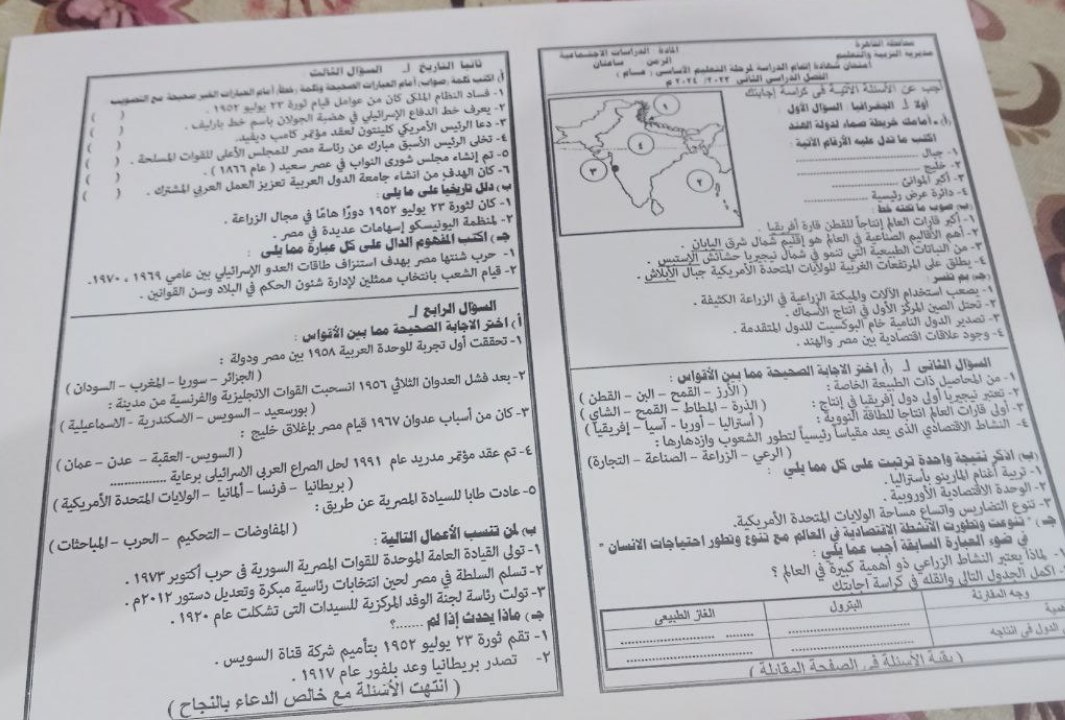 محافظة القاهرة
مديرية التربية والتعليم
المادة : الدراسات الاجتماعية
الزمن : ساعتان
امتحان شهادة إتمام الدراسة لمرحلة التعليم الأساسي ( عام )
الفصل الدراسي الثاني ٢٠٢٣/ ٢٠٢٤ م
أجب عن الأسئلة الآتية في كراسة إجابتك
أولا : الجغرافيا : السؤال الأول
(أ) - أمامك خريطة صماء لدولة الهند
اكتب ما تدل عليه الأرقام الآتية :
١- جبال ..................
٢- خليج ..................
٣- أكبر الموانئ ..................
٤- دائرة عرض رئيسية ..................
١
٢
٣
٤
(ب) صوب ما تحته خط :
١- أكبر قارات العالم إنتاجاً للقطن قارة أفريقيا .
٢- أهم الأقاليم الصناعية في العالم هو إقليم شمال شرق اليابان .
٣- من النباتات الطبيعية التي تنمو في شمال نيجيريا حشائش الإستبس .
٤- يطلق على المرتفعات الغربية للولايات المتحدة الأمريكية جبال الأبلاش .
(جـ) بم تفسر :
١- يصعب استخدام الآلات والميكنة الزراعية في الزراعة الكثيفة .
٢- تحتل الصين المركز الأول في انتاج الأسماك .
٣- تصدير الدول النامية خام البوكسيت للدول المتقدمة .
٤- وجود علاقات اقتصادية بين مصر والهند .
السؤال الثانى : (أ) اختر الاجابة الصحيحة مما بين الأقواس :
١- من المحاصيل ذات الطبيعة الخاصة : ( الأرز - القمح - البن - القطن )
٢- تعتبر نيجيريا أولى دول إفريقيا في إنتاج : ( الذرة - المطاط - القمح - الشاي )
٣- أولى قارات العالم انتاجاً للطاقة النووية : ( أستراليا - أوربا - آسيا - إفريقيا )
٤- النشاط الاقتصادي الذى يعد مقياساً رئيسياً لتطور الشعوب وازدهارها :
( الرعي - الزراعة - الصناعة - التجارة)
(ب) اذكر نتيجة واحدة ترتبت على كل مما يلي :
١- تربية أغنام المارينو بأستراليا .
٢- الوحدة الاقتصادية الأوروبية .
٣- تنوع التضاريس واتساع مساحة الولايات المتحدة الأمريكية.
جـ) " تنوعت وتطورت الأنشطة الاقتصادية في العالم مع تنوع وتطور احتياجات الانسان "
في ضوء العبارة السابقة أجب عما يلي :
- لماذا يعتبر النشاط الزراعي ذو أهمية كبيرة في العالم ؟
- اكمل الجدول التالي وانقله في كراسة اجابتك
وجه المقارنة
البترول
الغاز الطبيعى
همية
..................
..................
الدول في انتاجه
..................
..................
( بقية الأسئلة في الصفحة المقابلة )
ثانيا التاريخ : السؤال الثالث :
أ) اكتب كلمة (صواب) أمام العبارات الصحيحة وكلمة (خطأ) أمام العبارات الغير صحيحة مع التصويب
١- فساد النظام الملكى كان من عوامل قيام ثورة ٢٣ يوليو ١٩٥٢ . ( )
٢- يعرف خط الدفاع الإسرائيلي في هضبة الجولان باسم خط بارليف . ( )
٣- دعا الرئيس الأمريكي كلينتون لعقد مؤتمر كامب ديفيد. ( )
٤- تخلى الرئيس الأسبق مبارك عن رئاسة مصر للمجلس الأعلى للقوات المسلحة . ( )
٥- تم إنشاء مجلس شورى النواب في عصر سعيد ( عام ١٨٦٦ ) . ( )
٦- كان الهدف من انشاء جامعة الدول العربية تعزيز العمل العربي المشترك . ( )
ب) دلل تاريخيا على ما يلى :
١- كان لثورة ٢٣ يوليو ١٩٥٢ دورًا هامًا في مجال الزراعة .
٢- لمنظمة اليونيسكو إسهامات عديدة في مصر .
جـ) اكتب المفهوم الدال على كل عبارة مما يلى :
١- حرب شنتها مصر بهدف استنزاف طاقات العدو الإسرائيلي بين عامي ١٩٦٩ ، ١٩٧٠.
٢- قيام الشعب بانتخاب ممثلين لإدارة شئون الحكم في البلاد وسن القوانين .
السؤال الرابع :
أ) اختر الاجابة الصحيحة مما بين الأقواس :
١- تحققت أول تجربة للوحدة العربية ١٩٥٨ بين مصر ودولة :
( الجزائر - سوريا - المغرب - السودان )
٢- بعد فشل العدوان الثلاثي ١٩٥٦ انسحبت القوات الانجليزية والفرنسية من مدينة :
( بورسعيد - السويس - الاسكندرية - الاسماعيلية )
٣- كان من أسباب عدوان ١٩٦٧ قيام مصر بإغلاق خليج :
( السويس- العقبة - عدن - عمان )
٤- تم عقد مؤتمر مدريد عام ١٩٩١ لحل الصراع العربى الاسرائيلى برعاية ..................
( بريطانيا - فرنسا - ألمانيا - الولايات المتحدة الأمريكية )
٥- عادت طابا للسيادة المصرية عن طريق :
( المفاوضات - التحكيم - الحرب - المباحثات )
ب) لمن تنسب الأعمال التالية :
١- تولى القيادة العامة الموحدة للقوات المصرية السورية فى حرب أكتوبر ١٩٧٣ .
٢- تسلم السلطة في مصر لحين انتخابات رئاسية مبكرة وتعديل دستور ٢٠١٢م .
٣- تولت رئاسة لجنة الوفد المركزية للسيدات التى تشكلت عام ١٩٢٠ .
جـ) ماذا يحدث إذا لم ......؟
١- تقم ثورة ٢٣ يوليو ١٩٥٢ بتأميم شركة قناة السويس .
٢- تصدر بريطانيا وعد بلفور عام ١٩١٧ .
( انتهت الأسئلة مع خالص الدعاء بالنجاح )